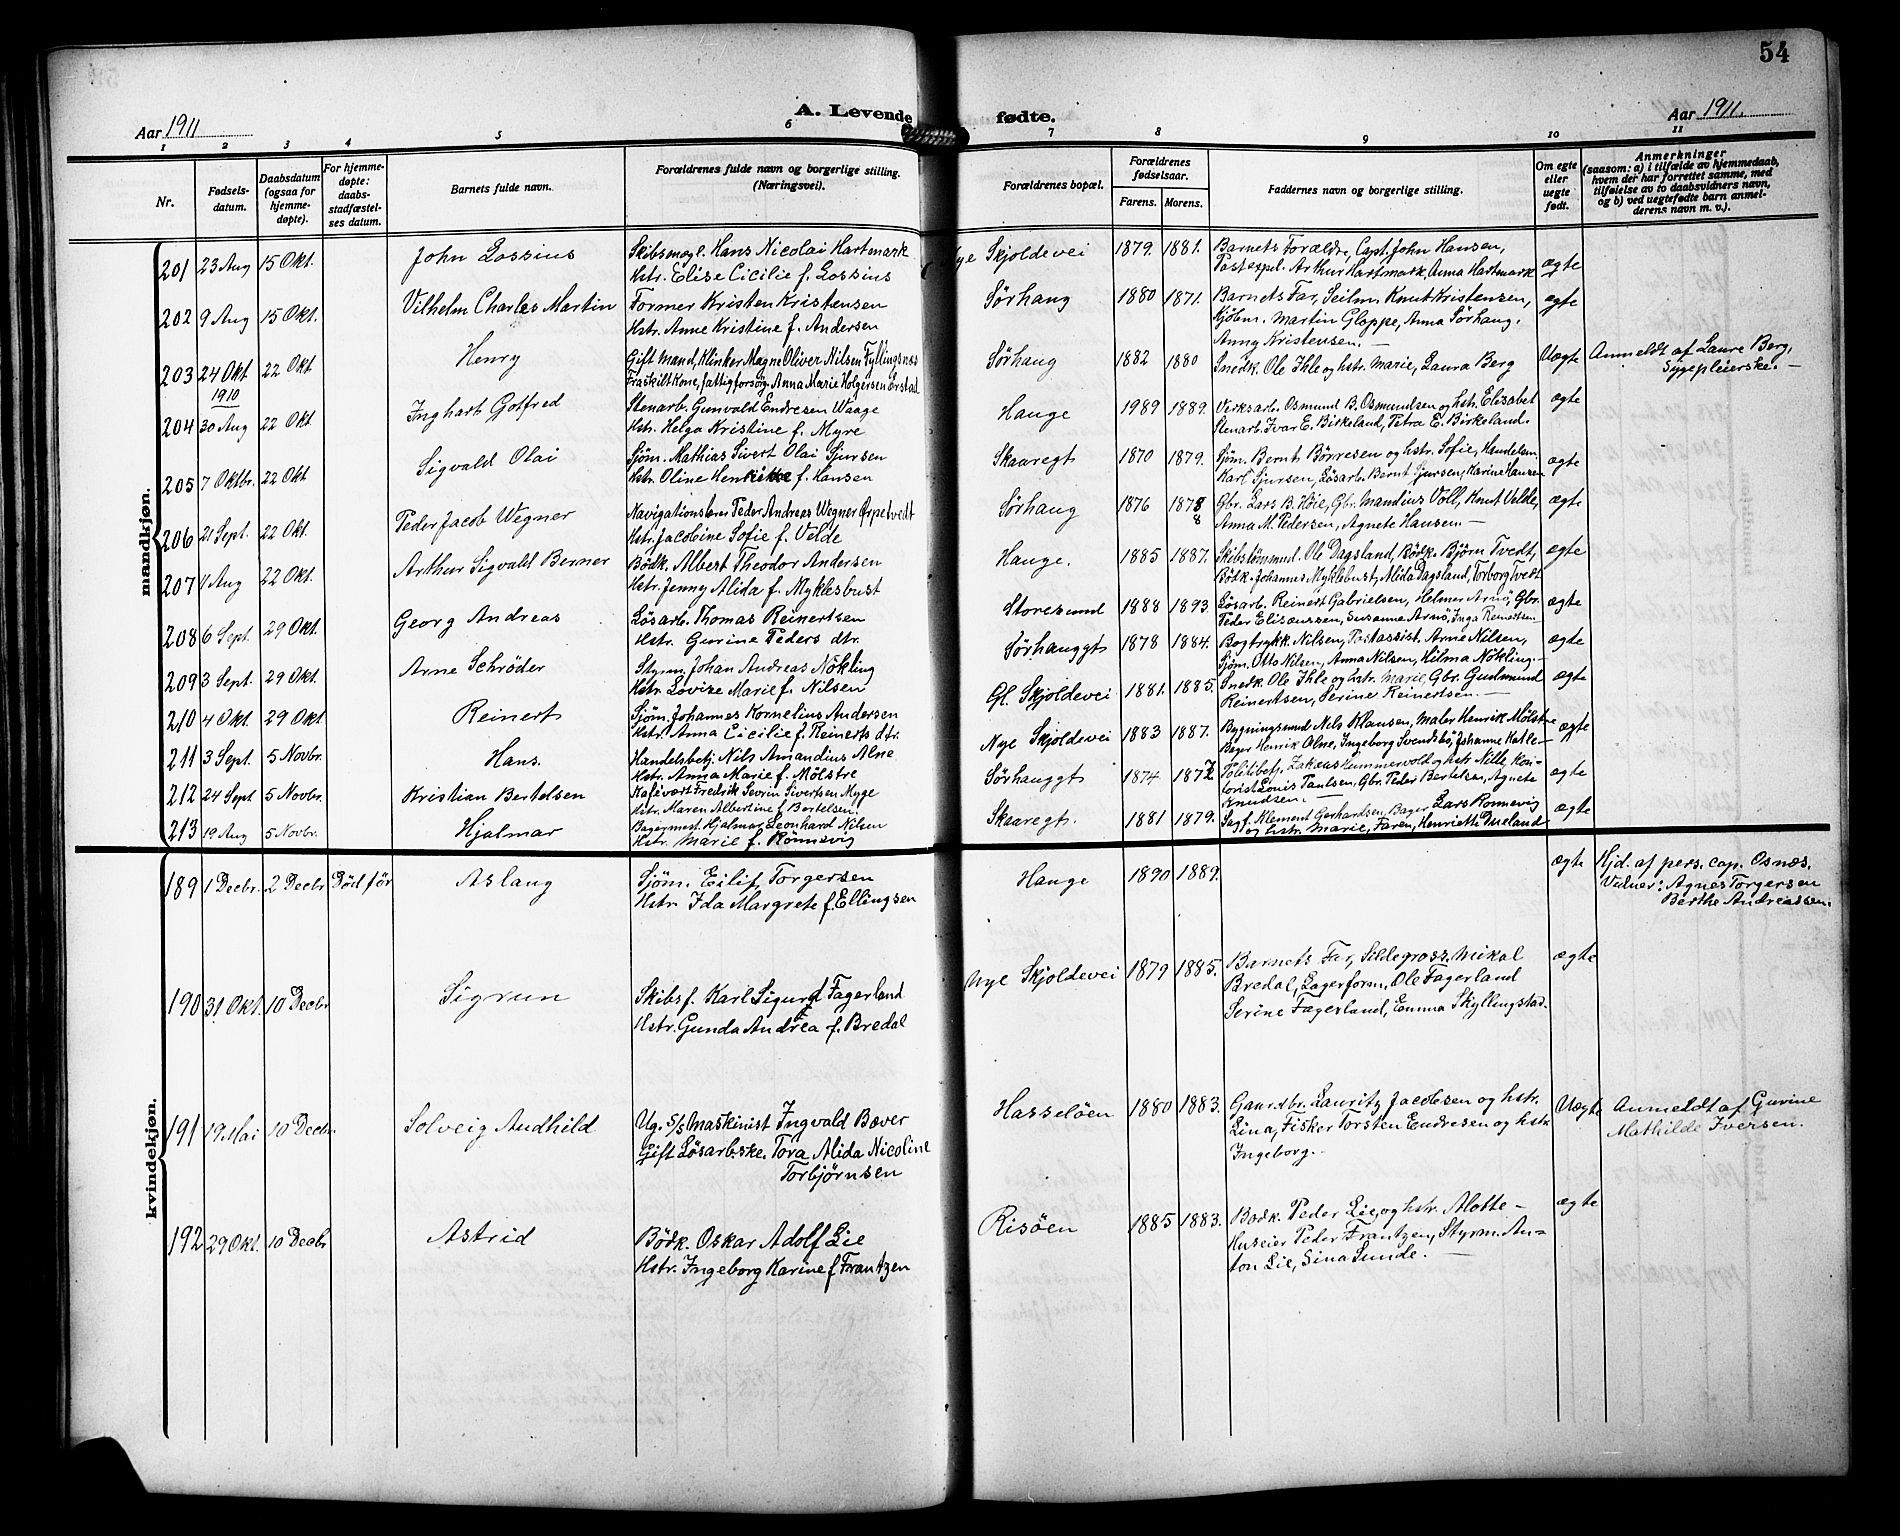 54
A. Levende fødte.
Aar 1911
Aar 1911.
1 2 3 4 5 6 7 8 9 10 11
Nr.
Fødsels-
datum.
Daabsdatum
(ogsaa for
hjemme-
døpte).
For hjemme-
døpte:
daabs
stadfæstel-
ses datum.
Barnets fulde navn.
Forældrenes fulde navn og borgerlige stilling.
(Næringsvei).
Forældrenes bopæl.
Forældrenes
fødselsaar.
Farens. Morens.
Faddernes navn og borgerlige stilling.
Om egte
eller
uegte
født.
Anmerkninger
(saasom: a) i tilfælde av hjemmedaab,
hvem der har forrettet samme, med
tilføielse av to daabsvidners navn,
og b) ved uegtefødte barn anmel-
derens navn m. v.).
mandkjøn.
201 23 Aug 15 Okt. John Lossius Skibsmægl. Hans Nicolai Hartmark Nye Skjoldevei 1879. 1881. Barnets Forældre, Capt. John Hansen, ægte
Hstr. Elise Cicilie f. Lossius Postexpd. Arthur Hartmark, Anna Hartmark
202 9 Aug 15 Okt. Vilhelm Charles Martin Former Kristen Kristensen Sørhaug 1880 1871. Barnets Far, Seilm. Knut Kristensen, ægte
Hstr. Anne Kristine f. Andersen Kjøbm. Martin Gloppe, Anna Sørhaug.
Anny Kristensen.—
203 24 Okt 1910 22 Okt Henry Gift mand, Klinker Magne Oliver Nilsen Fyllingsnæs Sørhaug 1882 1880 Snedk. Ole Ihle og hstr. Marie, Laura Berg Uægte Anmeldt af Laura Berg,
Fraskilt Kone, fattigforsøg. Anna Marie Holgersen Ørstad Sygepleierske.—
204 30 Aug 22 Okt Inghart Gotfred Stenarb. Gunvald Endresen Waage Hauge 1989 1889. Verksarb. Osmund B. Osmundsen og hstr. Elisabet ægte
Hstr. Helga Kristine f. Myre Stenarb. Ivar E. Birkeland, Petra E. Birkeland.
205 7 Oktbr. 22 Okt Sigvald Olai Sjøm. Mathias Sivert Olai Sjursen Skaaregt 1870 1879. Sjøm. Bernt Børresen og hstr. Sofie, Handelsm. ægte
Hstr. Oline Henrikke f. Hansen Karl Sjursen, Løsarb. Bernt Sjursen, Marine Hansen
206 21 Sept. 22 Okt. Peder Jacob Wegner Navigationslærer Peder Andreas WegnerØrpetvedt Sørhaug 1876 1878 Gbr. Lars B. Høie, Gbr. Mandius Voll, Knut Velde, ægte
Hstr. Jacobine Sofie f. Velde Anna M. Pedersen, Agnete Hansen.—
207 11 Aug 22 Okt. Arthur Sigvald Berner Bødk. Albert Theodor Andersen Hauge. 1885 1887. Skibstømmd. Ole Dagsland, Bødk. Bjørn Tvedt, ægte
Hstr. Jenny Alida f. Myklebust Bødk. Johannes Myklebust, Alida Dagsland, Torborg Tvedt
208 6 Sept. 29 Okt. Georg Andreas Løsarb. Thomas Reinertsen Storesund 1888 1893. Løsarb. Reinert Gabrielsen, Helmer Arnø, Gbr. ægte
Hstr. Gurine Peders dtr. Peder Eliseussen, Susanne Arnø, Inga Reinertsen
209 3 Sept. 29 Okt. Arne Schrøder Styrm. Johan Andreas Nøkling Sørhauggt 1878 1884. Bogtrykk. Nilsen, Postassist. Arne Nilsen, ægte
Hstr. Lovize Marie f. Nilsen Sjøm. Otto Nilsen, Anna Nilsen, Hilma Nøkling.—
210 4 Okt. 29 Okt Reinert Sjøm. Johannes Kornelius Andersen Gl. Skjoldevei 1881. 1885. Snedk. Ole Ihle og hstr. Marie, Gbr. Gudmund ægte
Hstr. Anna Cicilie f. Reinerts dtr. Reinertsen, Serine Reinertsen.—
211 3 Sept. 5 Novbr. Hans. Handelsbetj. Nils Amandius Alne Nye Skjoldevei 1883 1887. Bygningssmd Nils Klausen, maler Henrik Mølstre ægte
Hstr. Anna Marie f. Mølstre Bager Henrik Olne, Ingeborg Svendsbø, Johanne Katle—
212 24 Sept 5 Novbr. Kristian Bertelsen Kafévært Fredrik Sevrin Sivertsen Myge Sørhauggt 1874 1872 Politibetj. Zakæus Hummervold og hstr. Nille, Koi- ægte
Hstr. Maren Albertine f. Bertelsen. torist Louis Paulsen, Gbr. Peder Bertelsen, Agnete
Knudsen.—
213 19 Aug 5 Novbr. Hjalmar Bagermest. Hjalmar Leonhard Nilsen Skaaregt. 1881 1879. Sagf. Klement Gerhardsen, Bager Lars Rønnevig ægte
Hstr. Marie f. Rønnevig og hstr. Marie, Faren, Henriette Dueland
kvindekjøn.
189 1 Decbr. 2 Decbr Død før Aslaug Sjøm. Eilif Torgersen Hauge 1890 1889. ægte Hjd. af pers. cap. Osnæs.
Hstr. Ida Margrete f. Ellingsen Vidner: Agnes Torgersen
Berthe Andreassen.
190 31 Okt. 10 Decbr Sigrun Skibsf. Karl Sigurd Fagerland Nye Skjoldevei 1879 1885. Barnets Far, Sildegross. Mikal ægte
Hstr. Gunda Andrea f. Bredal Bredal, Lagerform. Ole Fagerland
Serine Fagerland, Emma Skyllingstad.
191 19 Mai 10 Decbr. Solveig Audhild Ug. S/S Maskinist Ingvald Bæver Hasseløen 1880 1883. Gaardbr. Lauritz Jacobsen og hstr. Uægte Anmeldt af Gurine
Gift Løsarbske. Tora Alida Nicoline Lina, Fisker Torsten Endresen og hstr. Mathilde Iversen.
Torbjørnsen Ingeborg.—
192 29 Okt. 10 Decbr Astrid Bødk. Oskar Adolf Lie Risøen 1885 1883. Bødk. Peder Lie og hstr. Alotte— ægte
Hstr. Ingeborg Karine f. Frantzen Huseier Peder Frantzen, Styrm. An-
ton Lie, Sina Sunde.—